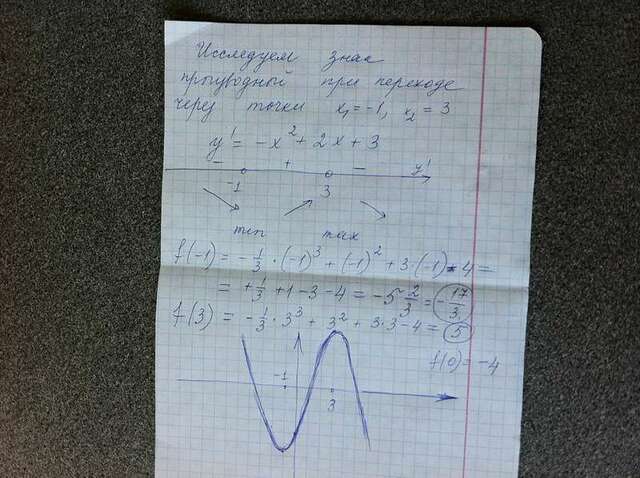 Исследуем знак
производной при переходе
через точки x₁ = -1, x₂ = 3
y' = -x² + 2x + 3
- + - y'
-1 3
min max
f(-1) = -1/3 · (-1)³ + (-1)² + 3·(-1) - 4 =
= +1/3 + 1 - 3 - 4 = -5 2/3 = -17/3
f(3) = -1/3 · 3³ + 3² + 3·3 - 4 = 5
f(0) = -4
-1
3